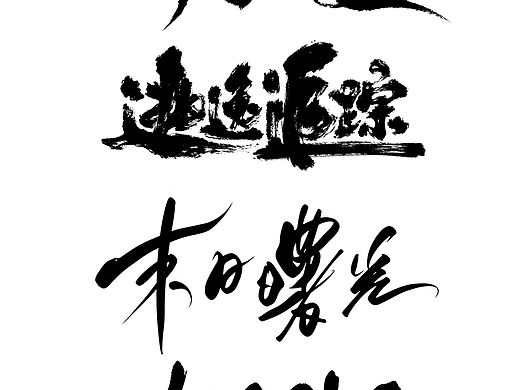 逃逸追踪
末日曙光